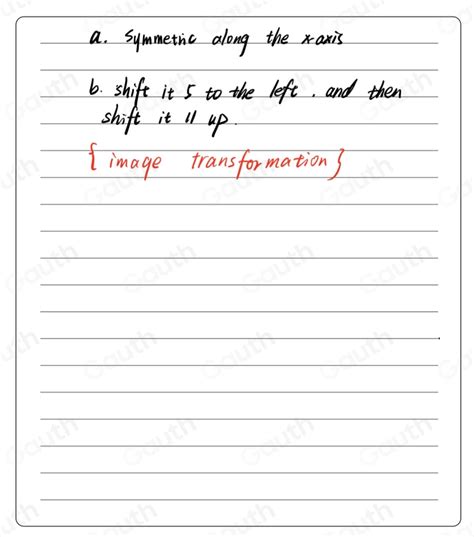 a. Symmetric along the x-axis
b. shift it 5 to the left. and then
shift it 11 up.
{image transformation}